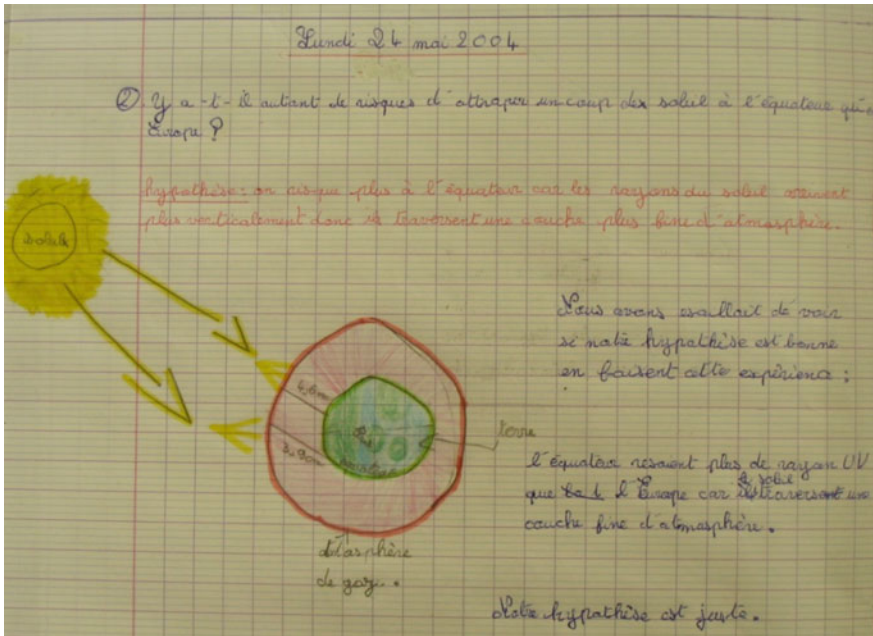 Lundi 24 mai 2004
② Y a-t-il autant de risques d'attraper un coup des soleil à l'équateur qu'e
Europe ?
hypothèse: on risque plus à l'équateur car les rayons du soleil arrivent
plus verticalement donc ils traversent une couche plus fine d'atmosphère.
soleil
Nous avons esaillait de voir
si notre hypothèse est bonne
en faisent cette expérience :
4,6cm
3,9cm
terre
l'équateur resoient plus de rayon UV
que l'Europe car le soleil traversent une
couche fine d'atmosphère.
de gaz.
Notre hypothèse est juste.